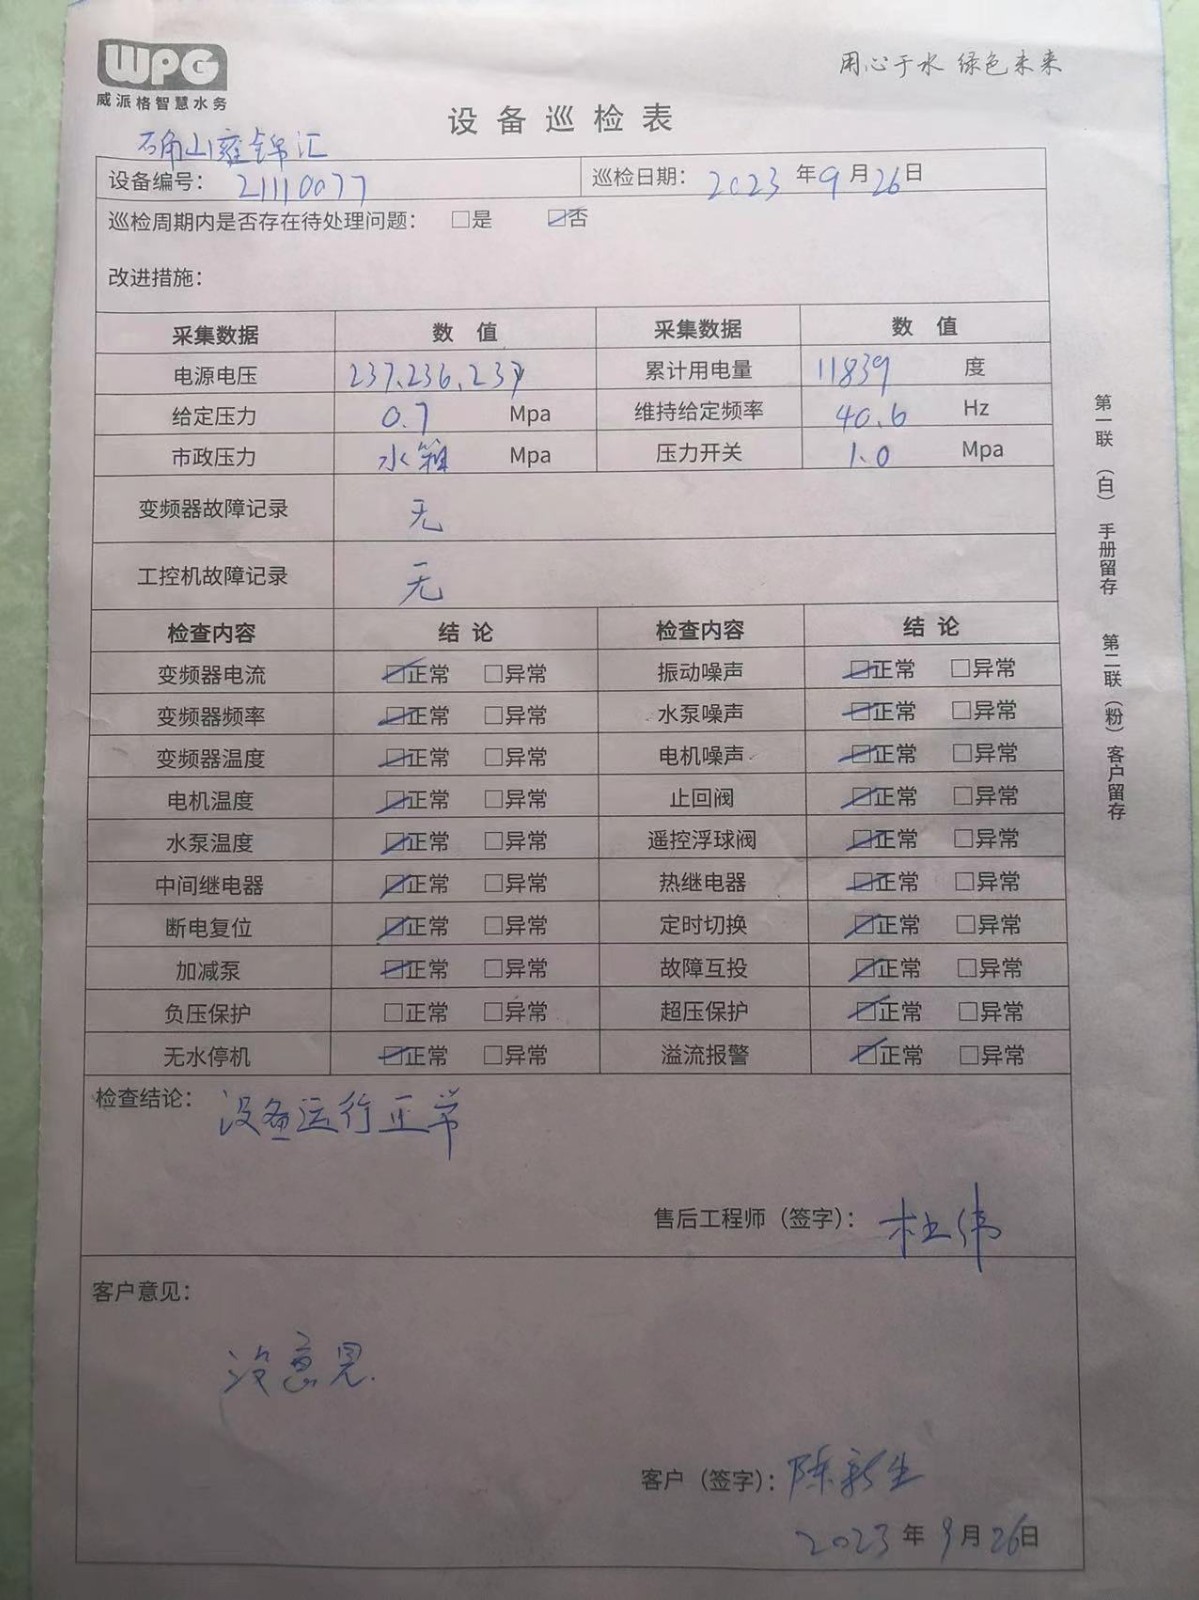 WPG
威派格智慧水务
用心于水 绿色未来
设备巡检表
确山雍锦汇
设备编号： 21110077 巡检日期： 2023 年 9 月 26 日
巡检周期内是否存在待处理问题： □是 ☑否
改进措施：
采集数据 数 值 采集数据 数 值
电源电压 237.236.237 累计用电量 11839 度
给定压力 0.7 Mpa 维持给定频率 40.6 Hz
市政压力 水箱 Mpa 压力开关 1.0 Mpa
变频器故障记录 无
工控机故障记录 无
检查内容 结 论 检查内容 结 论
变频器电流 ☑正常 □异常 振动噪声 ☑正常 □异常
变频器频率 ☑正常 □异常 水泵噪声 ☑正常 □异常
变频器温度 ☑正常 □异常 电机噪声 ☑正常 □异常
电机温度 ☑正常 □异常 止回阀 ☑正常 □异常
水泵温度 ☑正常 □异常 遥控浮球阀 ☑正常 □异常
中间继电器 ☑正常 □异常 热继电器 ☑正常 □异常
断电复位 ☑正常 □异常 定时切换 ☑正常 □异常
加减泵 ☑正常 □异常 故障互投 ☑正常 □异常
负压保护 □正常 □异常 超压保护 ☑正常 □异常
无水停机 ☑正常 □异常 溢流报警 ☑正常 □异常
检查结论： 设备运行正常
售后工程师（签字）： 杜伟
客户意见：
没意见.
客户（签字）： 陈新生
2023 年 9 月 26 日
第一联（白）手册留存 第二联（粉）客户留存